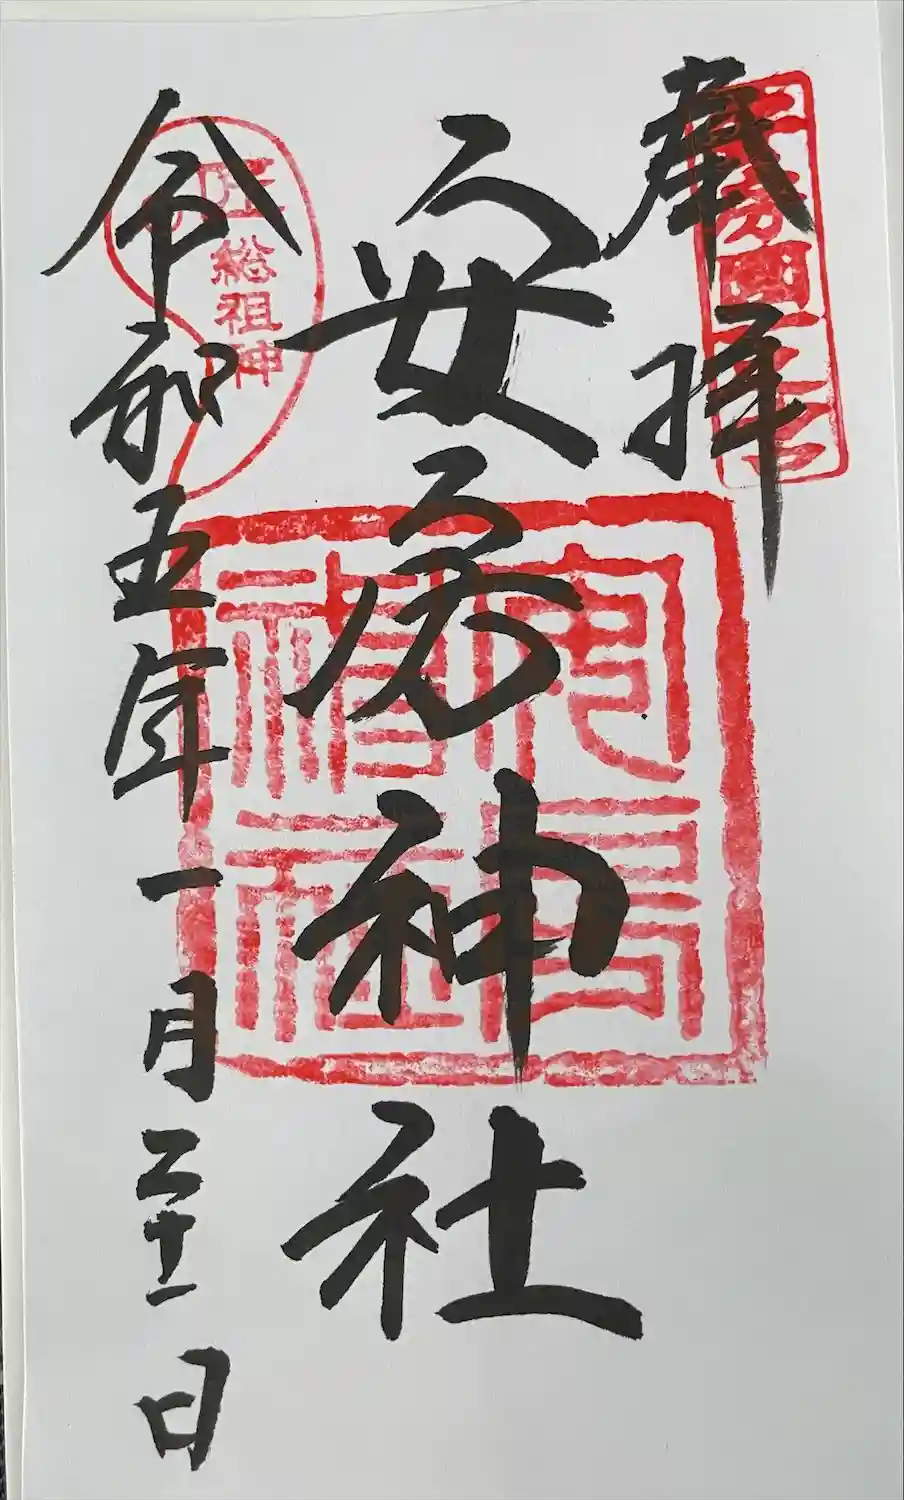 奉拝
安房神社
安房神社
匠総祖神
令和五年一月二十一日